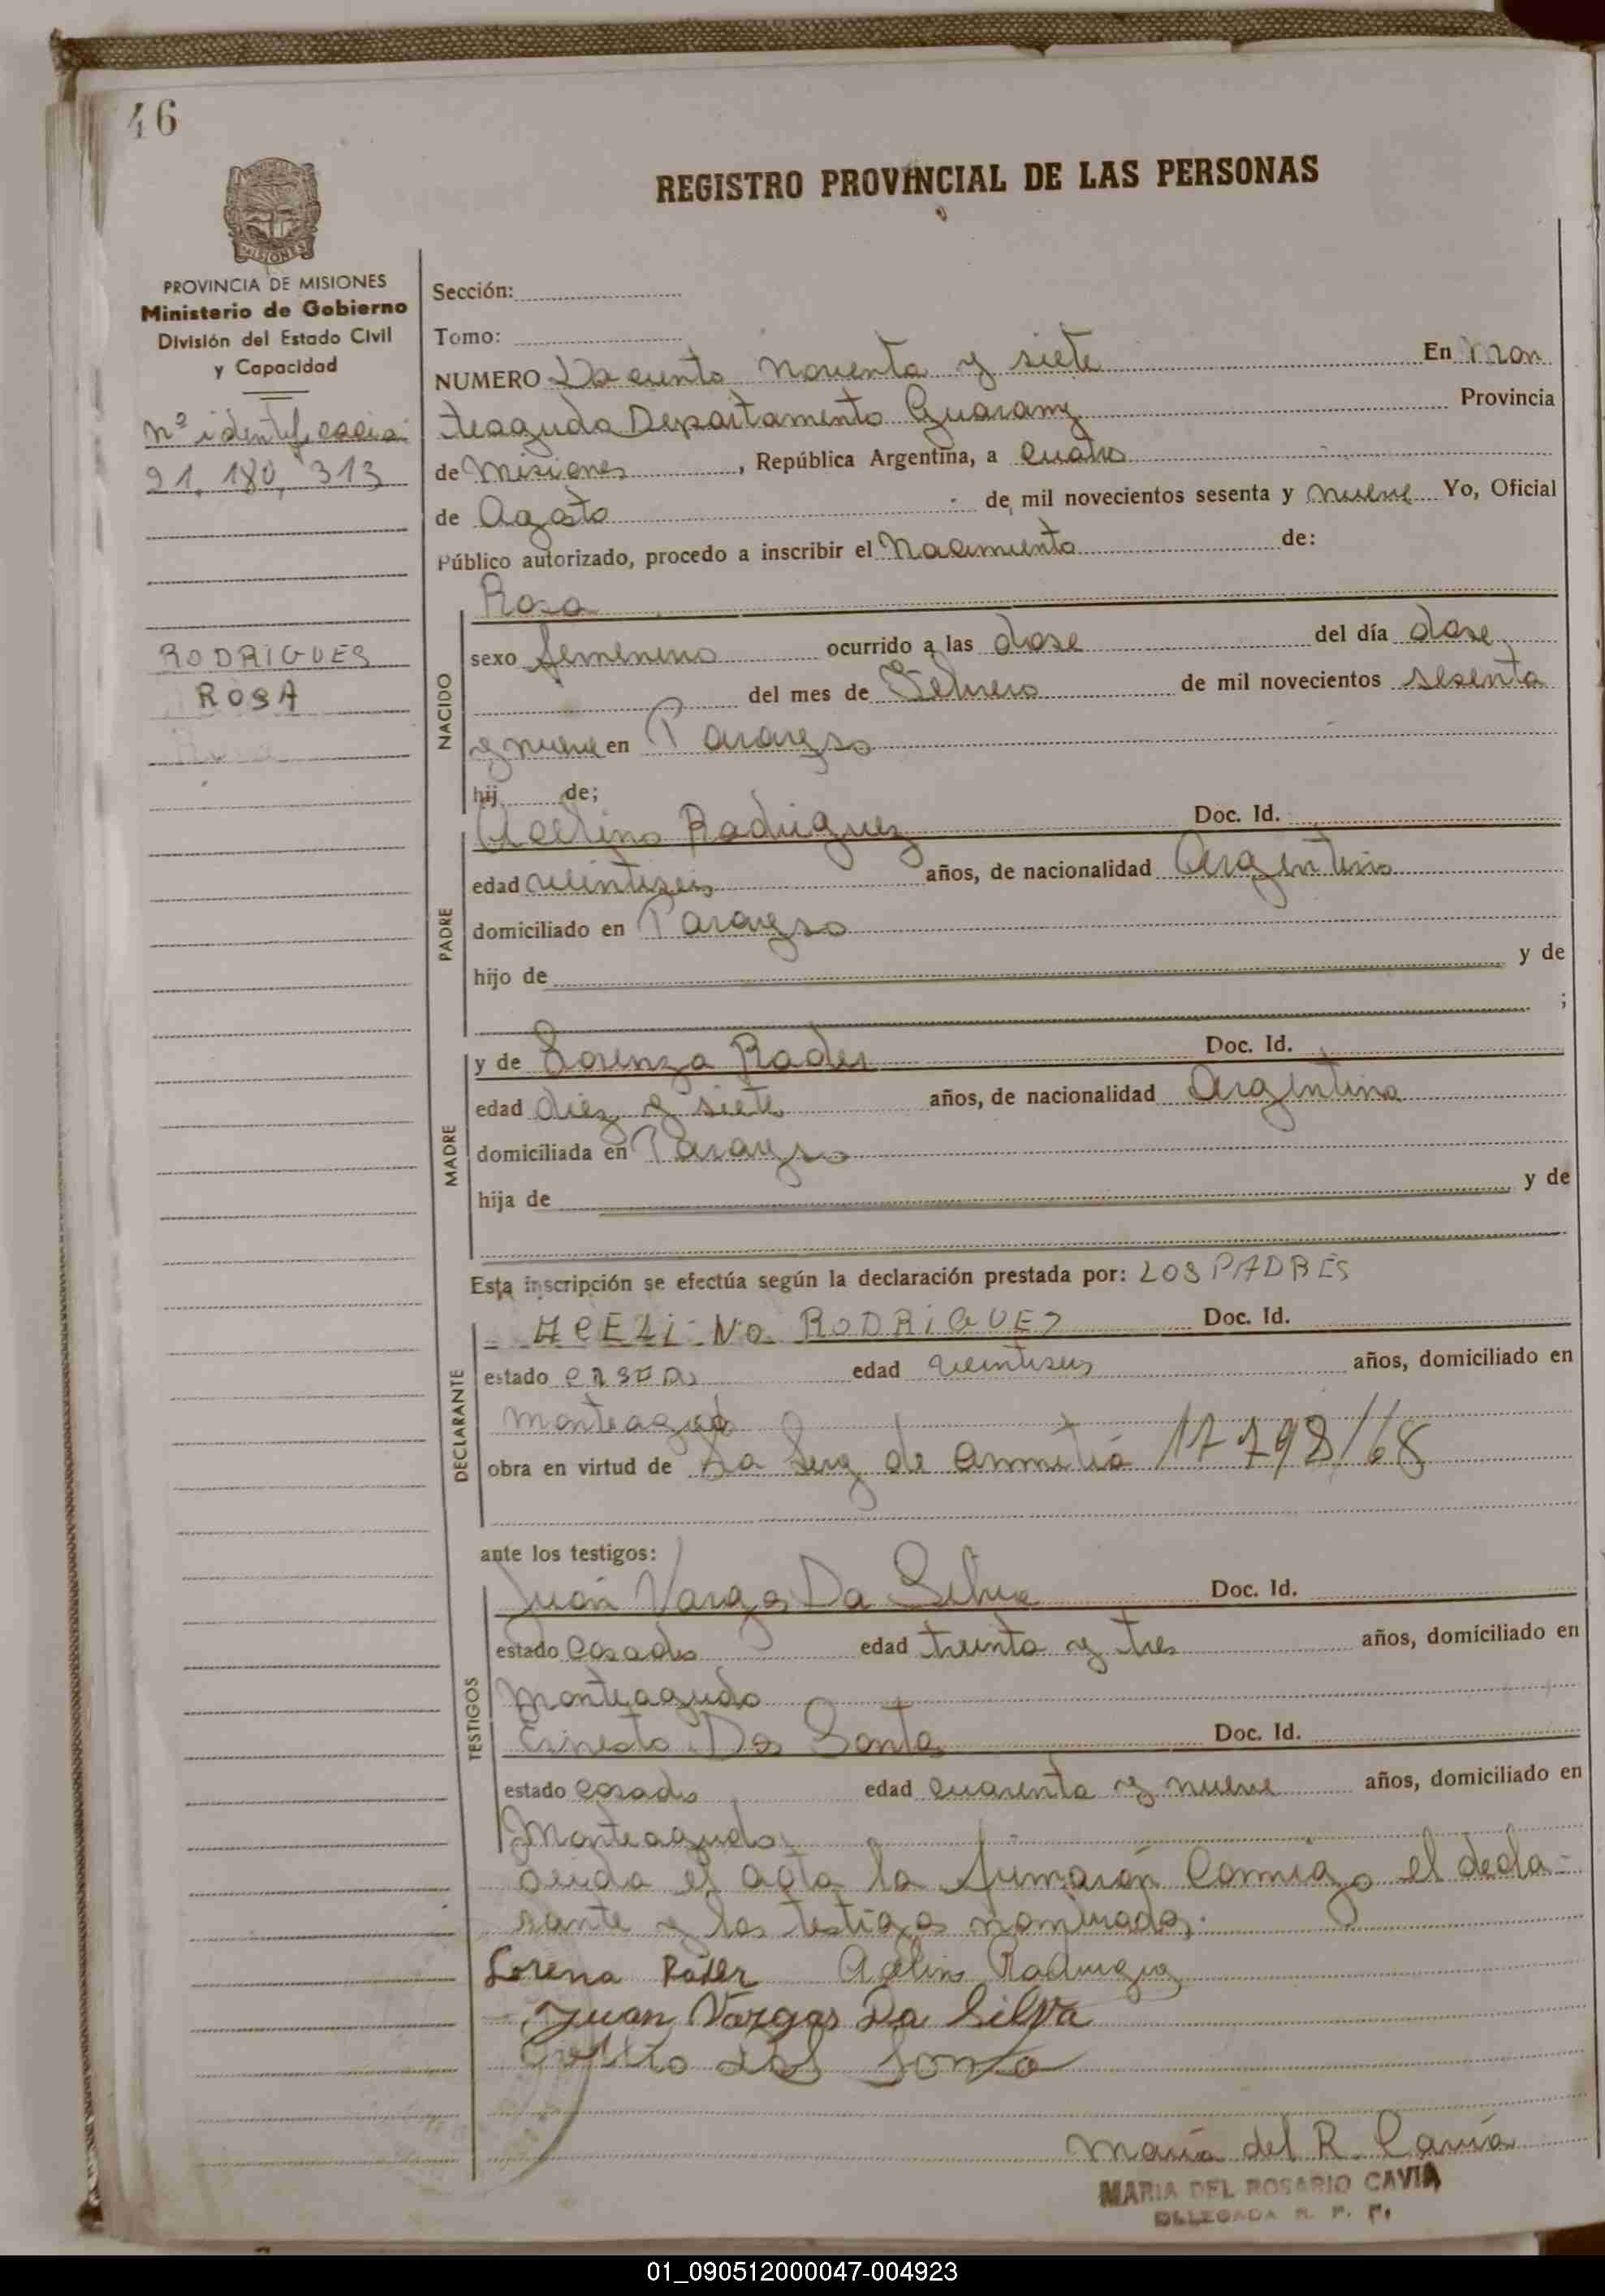 46
REGISTRO PROVINCIAL DE LAS PERSONAS
MISIONES
PROVINCIA DE MISIONES
Ministerio de Gobierno
División del Estado Civil
y Capacidad
Nº identificacio
21.180.313
RODRIGUES
ROSA
Sección:
Tomo:
NUMERO Dociento noventa y siete En Mon
teagudo Departamento Guarany Provincia
de Misiones, República Argentina, a cuatro
de Agosto de mil novecientos sesenta y nueve Yo, Oficial
Público autorizado, procedo a inscribir el Nacimiento de:
NACIDO
Rosa
sexo femenino ocurrido a las dose del día dose
del mes de Febrero de mil novecientos sesenta
y nueve en Parayso
hij de;
PADRE
Acelino Rodriguez Doc. Id.
edad veintiseis años, de nacionalidad Argentino
domiciliado en Parayso
hijo de y de
;
MADRE
y de Lorenza Rader Doc. Id.
edad diez y siete años, de nacionalidad Argentina
domiciliada en Parayso
hija de y de
Esta inscripción se efectúa según la declaración prestada por: LOS PADRES
DECLARANTE
ACELINO RODRIGUEZ Doc. Id.
estado CASADO edad veintiseis años, domiciliado en
Monteagudo
obra en virtud de La Ley de 17798/68
ante los testigos:
TESTIGOS
Juan Vargas Da Silva Doc. Id.
estado Casado edad treinta y tres años, domiciliado en
Monteagudo
Ernesto Dos Santo Doc. Id.
estado Casado edad cuarenta y nueve años, domiciliado en
Monteagudo
el acta la firmaran Conmigo el decla-
rante y los testigos nombrados.
Lorena Rader Acelino Rodriguez
Juan Vargas Da Silva
dos
Maria del R. Cavia
MARIA DEL ROSARIO CAVIA
DELEGADA R. P. P.
01_090512000047-004923